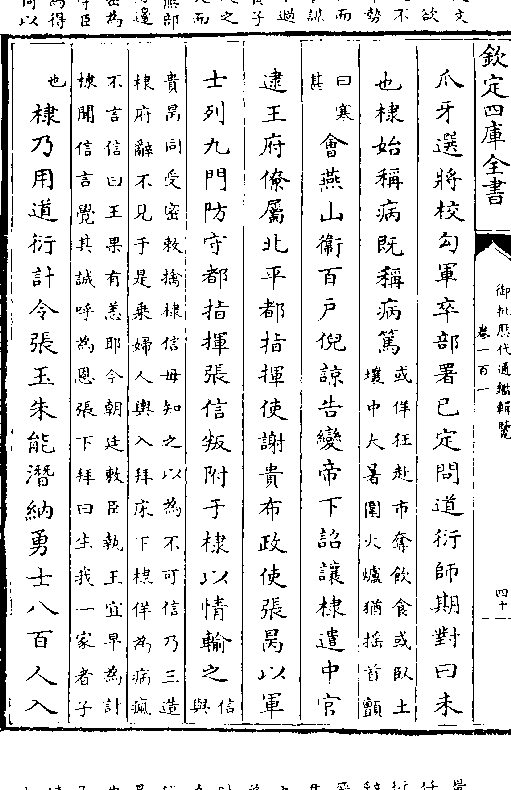 欽定四庫全書
御批歷代通鑑輯覽
卷一百一
四十
爪牙選將校勾軍卒部署已定問道衍師期對曰未
也棣始稱病既稱病篤
或佯狂赴市奪飲食或臥土
壤中大暑圍火爐猶搖首顫
曰寒
甚
會燕山衞百戶倪諒告變帝下詔讓棣遣中官
逮王府僚屬北平都指揮使謝貴布政使張昺以軍
士列九門防守都指揮張信叛附于棣以情輸之
信
與
貴昺同受密敕擒棣信母知之以為不可信乃三造
棣府辭不見于是乘婦人輿入拜床下棣佯為病瘋
不言信曰王果有恙耶今朝廷敕臣執王宜早為計
棣聞信言覺其誠呼為恩張下拜曰生我一家者子
也
棣乃用道衍計令張玉朱能潛納勇士八百人入